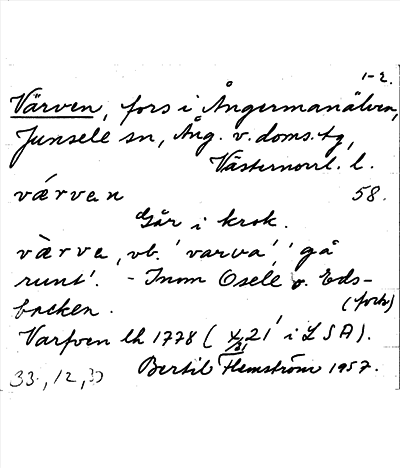 1-2.
Värven, fors i Ångermanälven,
Junsele sn, Ång. v. doms. tg,
Västernorrl. l.
värven 58.
Går i krok.
värva, vb. 'varva', 'gå
runt'. - Inom Osele o. Eds-
backen. (fork)
Varfven lh 1778 ( 21' i LSA).
33, 12, Bertil Flemström 1957.